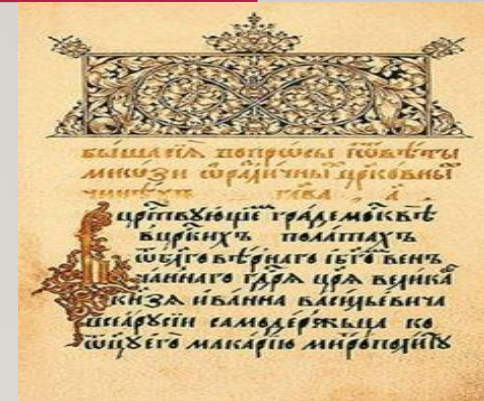 быша сїѧ вопросы і ѿвѣты
мнози ѡ разлїчны црковны
чинѣхъ глава а
Въ црствующїе граде москвѣ
вцркихъ полатахъ
ѿ блговѣрнаго і бго вѣн
чаннаго гдрѧ црѧ велика
кнѕѧ иванна васильевича
всеарусїи самодержьца ко
ѿцу его макарїю миропилиту